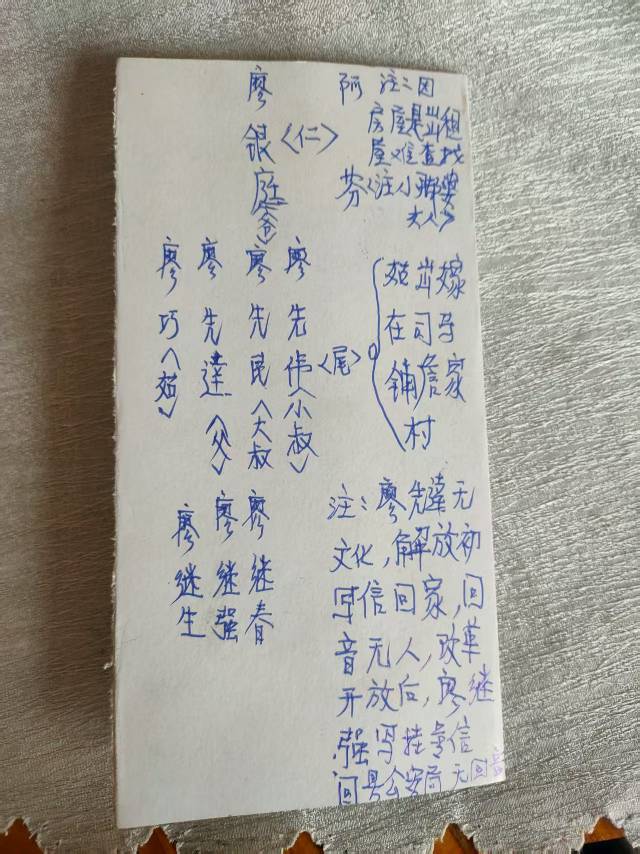 廖银庭〈爷〉
〈仁〉
阿芬
注:因
房屋是出租
屋难查找
〈注小脚婆
大人〉
廖先伟〈小叔〉
廖先民〈大叔〉
廖先達〈父〉
廖巧〈姑〉
〈尾〉
姑出嫁
在司马
铺詹家
村
廖继春
廖继强
廖继生
注:廖先達无
文化,解放初
写信回家,回
音无人,改革
开放后,廖继
强写挂号信
回县公安局无回音